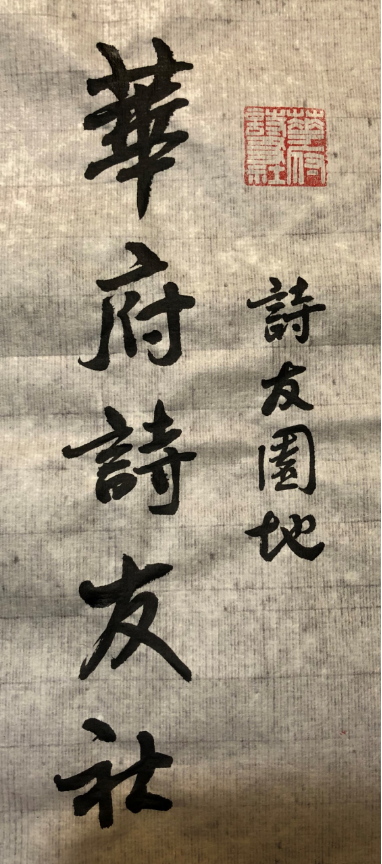 詩友園地
華府詩友社
華府詩友社